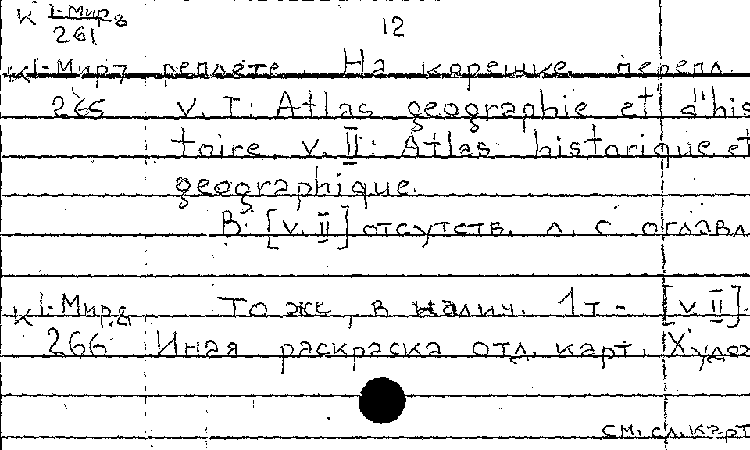 К 1-Мир8
261
12
К1-Мир7 реплете. На корешке перепл.
265 v. I: Atlas geographie et d'his
toire, v. II: Atlas historique et
geographique.
В: [v. II] отсутств. л. с оглавл
К1-Мир8 То же, в налич. 1т - [v II]
266 Иная раскраска отд. карт. Худож
см. сл. карт